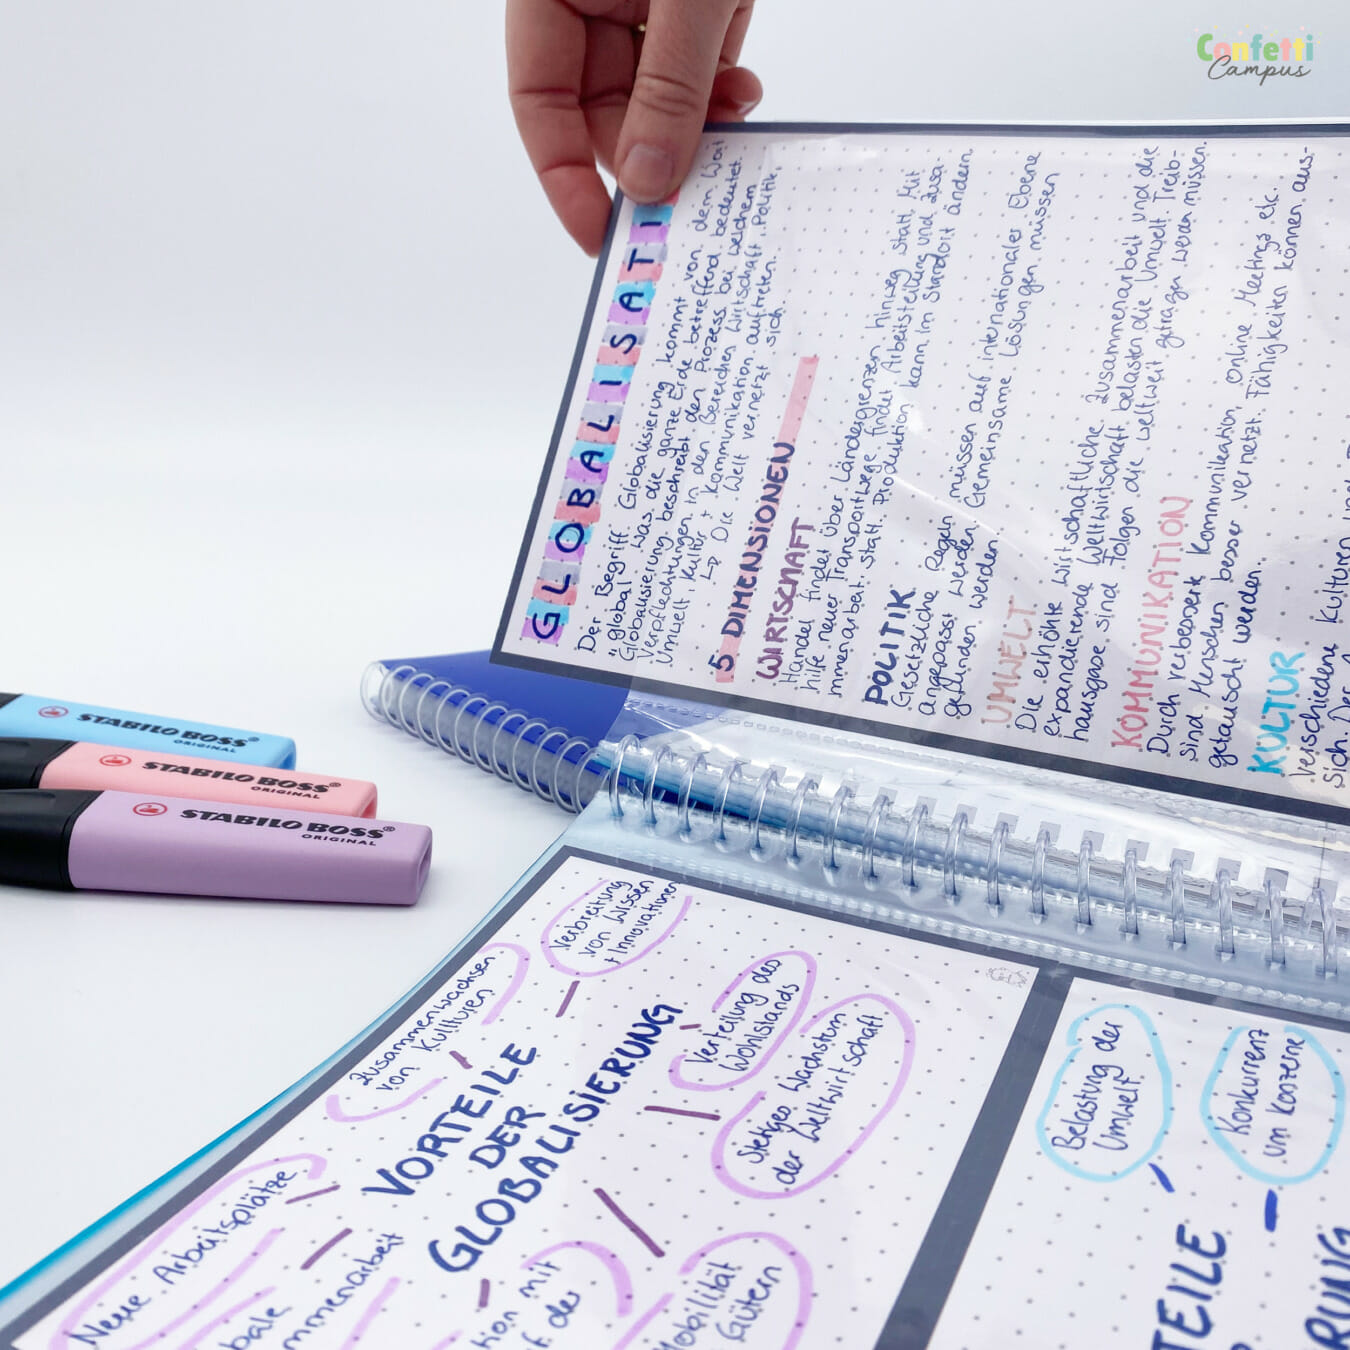 Confetti
Campus
GLOBALISATI
Der Begriff Globalisierung kommt von dem Wort
"global", was die ganze Erde betreffend bedeutet.
Globalisierung beschreibt den Prozess, bei welchem
Verpflechtungen in den Bereichen Wirtschaft, Politik,
Umwelt, Kultur + Kommunikation auftreten.
Die Welt vernetzt sich
5 DIMENSIONEN
WIRTSCHAFT
Handel findet über Ländergrenzen hinweg statt. Mit
hilfe neuer Transportwege findet Arbeitsteilung und Zusa-
mmenarbeit statt. Produktion kann im Standort ändern
POLITIK
Gesetzliche Regeln müssen auf internationaler Ebene
angepasst werden. Gemeinsame Lösungen müssen
gefunden werden.
UMWELT
Die erhöhte wirtschaftliche Zusammenarbeit und die
expandierende Weltwirtschaft belasten die Umwelt. Treib-
hausgase sind Folgen die weltweit getragen werden müssen.
KOMMUNIKATION
Durch verbesserte Kommunikation, online Meetings etc.
sind Menschen besser vernetzt. Fähigkeiten können aus-
getauscht werden.
KULTUR
Verschiedene Kulturen und
sich. Der
STABILO BOSS®
ORIGINAL
STABILO BOSS®
ORIGINAL
STABILO BOSS®
ORIGINAL
VORTEILE
DER
GLOBALISIERUNG
Verbreitung
von Wissen
+ Innovationen
Zusammenwachsen
von Kulturen
Verteilung des
Wohlstands
Stetiges Wachstum
der Weltwirtschaft
Neue Arbeitsplätze
bale
mmenarbeit
tion mit
f der
Mobilität
Gütern
Belastung der
Umwelt
Konkurrenz
um Konzerne
TEILE
RUNG